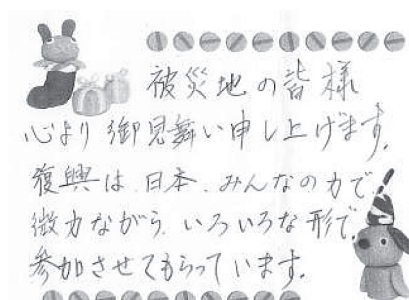 被災地の皆様
心より御見舞い申し上げます。
復興は、日本、みんなの力で、
微力ながら、いろいろな形で、
参加させてもらっています。